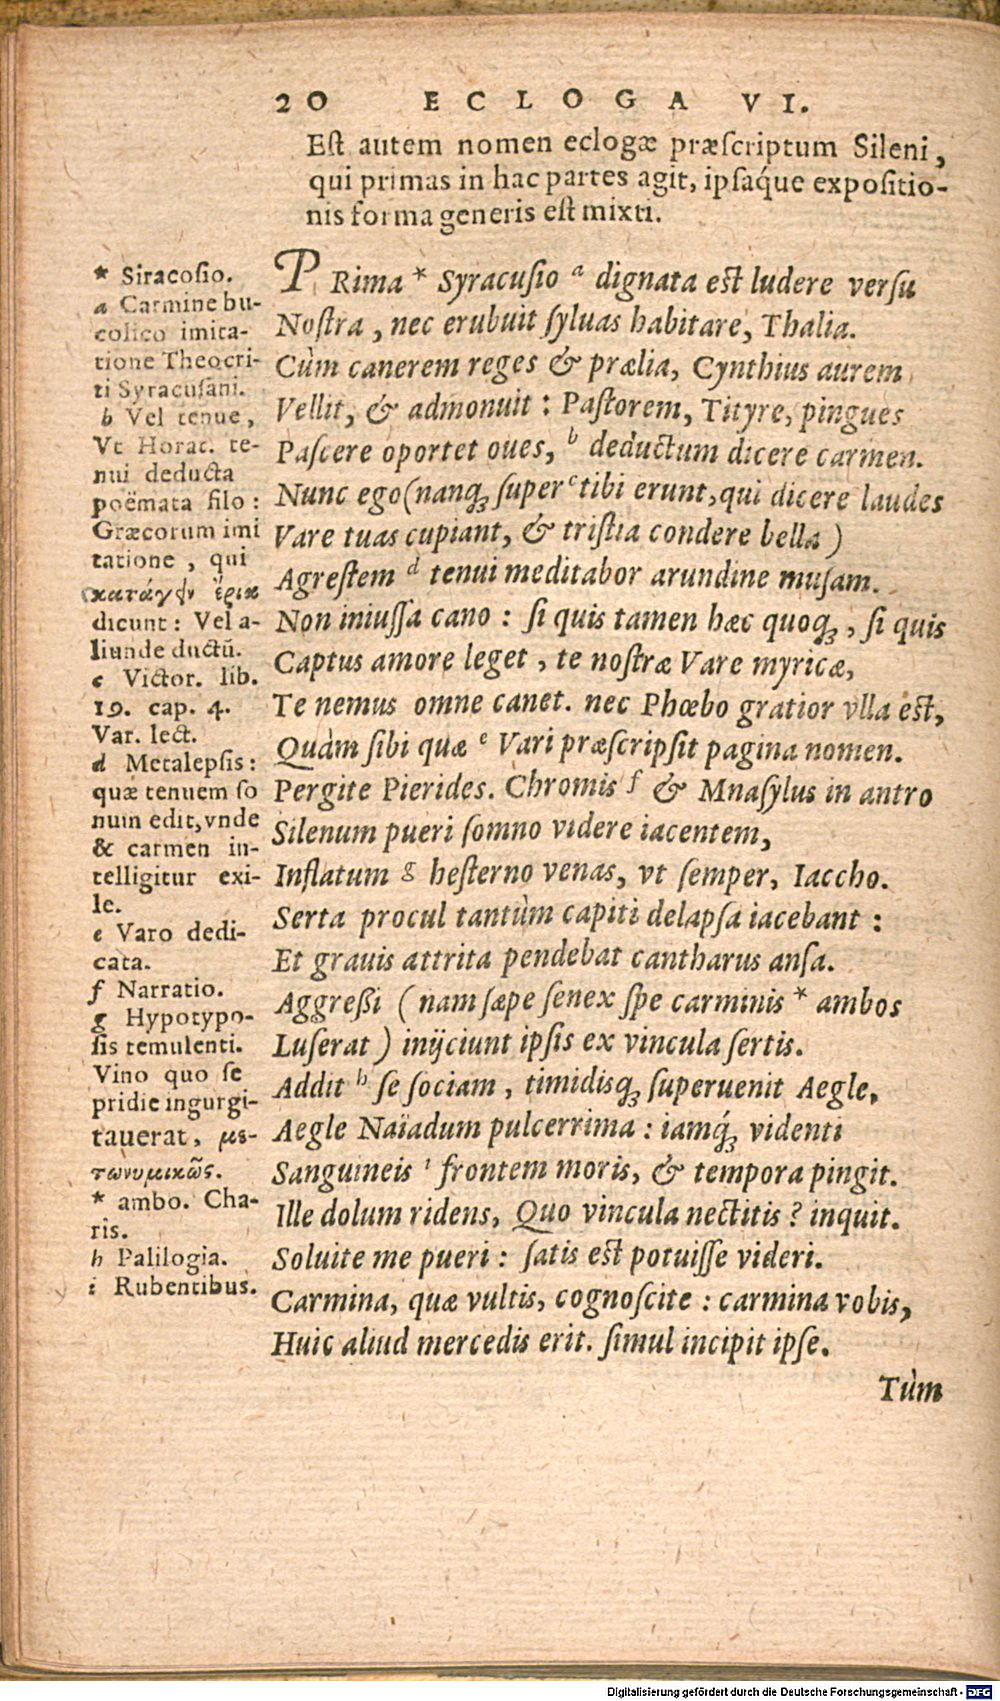 20 ECLOGA VI.
Est autem nomen eclogæ præscriptum Sileni,
qui primas in hac partes agit, ipsaq́ue expositio-
nis forma generis est mixti.
PRima * Syracusio ᵃ dignata est ludere versu
Nostra, nec erubuit syluas habitare, Thalia.
Cùm canerem reges & prælia, Cynthius aurem
Vellit, & admonuit: Pastorem, Tityre, pingues
Pascere oportet oues, ᵇ deductum dicere carmen.
Nunc ego (nanq; super ᶜ tibi erunt, qui dicere laudes
Vare tuas cupiant, & tristia condere bella)
Agrestem ᵈ tenui meditabor arundine musam.
Non iniussa cano: si quis tamen hæc quoq;, si quis
Captus amore leget, te nostræ Vare myricæ,
Te nemus omne canet. nec Phœbo gratior vlla est,
Quàm sibi quæ ᵉ Vari præscripsit pagina nomen.
Pergite Pierides. Chromis ᶠ & Mnasylus in antro
Silenum pueri somno videre iacentem,
Inflatum ᵍ hesterno venas, vt semper, Iaccho.
Serta procul tantùm capiti delapsa iacebant:
Et grauis attrita pendebat cantharus ansa.
Aggreßi (nam sæpe senex spe carminis * ambos
Luserat) inijciunt ipsis ex vincula sertis.
Addit ʰ se sociam, timidisq; superuenit Aegle,
Aegle Naïadum pulcerrima: iamq́; videnti
Sanguineis ⁱ frontem moris, & tempora pingit.
Ille dolum ridens, Quo vincula nectitis? inquit.
Soluite me pueri: satis est potuisse videri.
Carmina, quæ vultis, cognoscite: carmina vobis,
Huic aliud mercedis erit. simul incipit ipse.
Tùm
* Siracosio.
a Carmine bu-
colico imita-
tione Theocri-
ti Syracusani.
b Vel tenue,
Vt Horat. te-
nui deducta
poëmata filo:
Græcorum imi
tatione, qui
κατάγειν ἔρια
dicunt: Vel a-
liunde ductũ.
c Victor. lib.
19. cap. 4.
Var. lect.
d Metalepsis:
quæ tenuem so
num edit, vnde
& carmen in-
telligitur exi-
le.
e Varo dedi-
cata.
f Narratio.
g Hypotypo-
sis temulenti.
Vino quo se
pridie ingurgi-
tauerat, με-
τωνυμικῶς.
* ambo. Cha-
ris.
h Palilogia.
i Rubentibus.
Digitalisierung gefördert durch die Deutsche Forschungsgemeinschaft - DFG